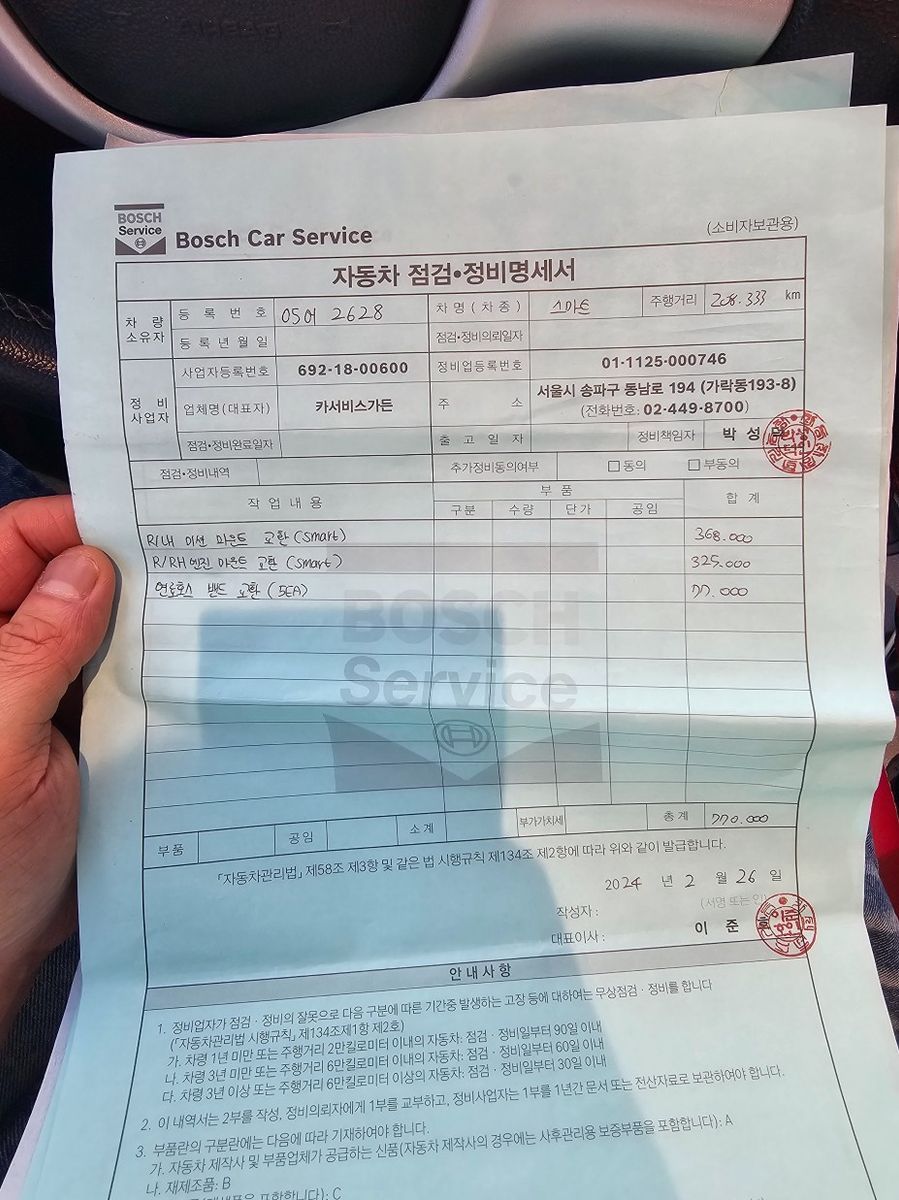 BOSCH
Service
Bosch Car Service
(소비자보관용)
자동차 점검•정비명세서
차 량
소유자
등 록 번 호
05어 2628
차 명 ( 차 종 )
스마트
주행거리
208.333 km
등 록 년 월 일
점검·정비의뢰일자
정 비
사업자
사업자등록번호
692-18-00600
정비업등록번호
01-1125-000746
업체명(대표자)
카서비스가든
주 소
서울시 송파구 동남로 194 (가락동193-8)
(전화번호: 02-449-8700)
점검·정비완료일자
출 고 일 자
정비책임자
박 성
점검·정비내역
추가정비동의여부
□ 동의
□ 부동의
작 업 내 용
부 품
구분
수량
단가
공임
합 계
R/LH 미션 마운트 교환 (smart)
368.000
R/RH 엔진 마운트 교환 (smart)
325.000
연료호스 밴드 교환 (5EA)
77.000
BOSCH
Service
부품
공임
소 계
부가가치세
총 계
770.000
「자동차관리법」 제58조 제3항 및 같은 법 시행규칙 제134조 제2항에 따라 위와 같이 발급합니다.
2024 년 2 월 26 일
작성자 :
(서명 또는 인)
대표이사 :
이 준
안 내 사 항
1. 정비업자가 점검·정비의 잘못으로 다음 구분에 따른 기간중 발생하는 고장 등에 대하여는 무상점검·정비를 합니다
(「자동차관리법 시행규칙」 제134조제1항 제2호)
가. 차령 1년 미만 또는 주행거리 2만킬로미터 이내의 자동차: 점검·정비일부터 90일 이내
나. 차령 3년 미만 또는 주행거리 6만킬로미터 이내의 자동차: 점검·정비일부터 60일 이내
다. 차령 3년 이상 또는 주행거리 6만킬로미터 이상의 자동차: 점검·정비일부터 30일 이내
2. 이 내역서는 2부를 작성, 정비의뢰자에게 1부를 교부하고, 정비사업자는 1부를 1년간 문서 또는 전산자료로 보관하여야 합니다.
3. 부품란의 구분란에는 다음에 따라 기재하여야 합니다.
가. 자동차 제작사 및 부품업체가 공급하는 신품(자동차 제작사의 경우에는 사후관리용 보증부품을 포함합니다): A
나. 재제조품: B
포함합니다): C